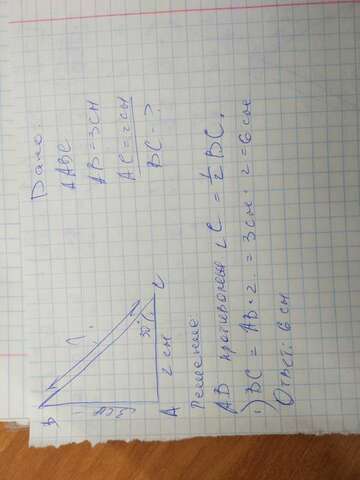 Дано:
ΔABC
AB = 3 см
AC = 2 см
BC - ?
B
?
3 см
30°
C
2 см
A
Решение
AB противолежа ∠C = 1/2 BC,
BC = AB · 2 = 3 см · 2 = 6 см
Ответ: 6 см